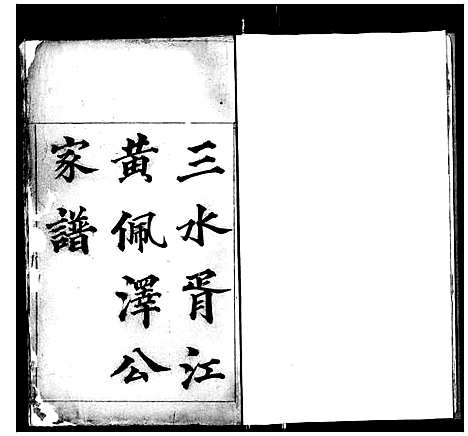 三水胥江
黃佩澤公
家譜